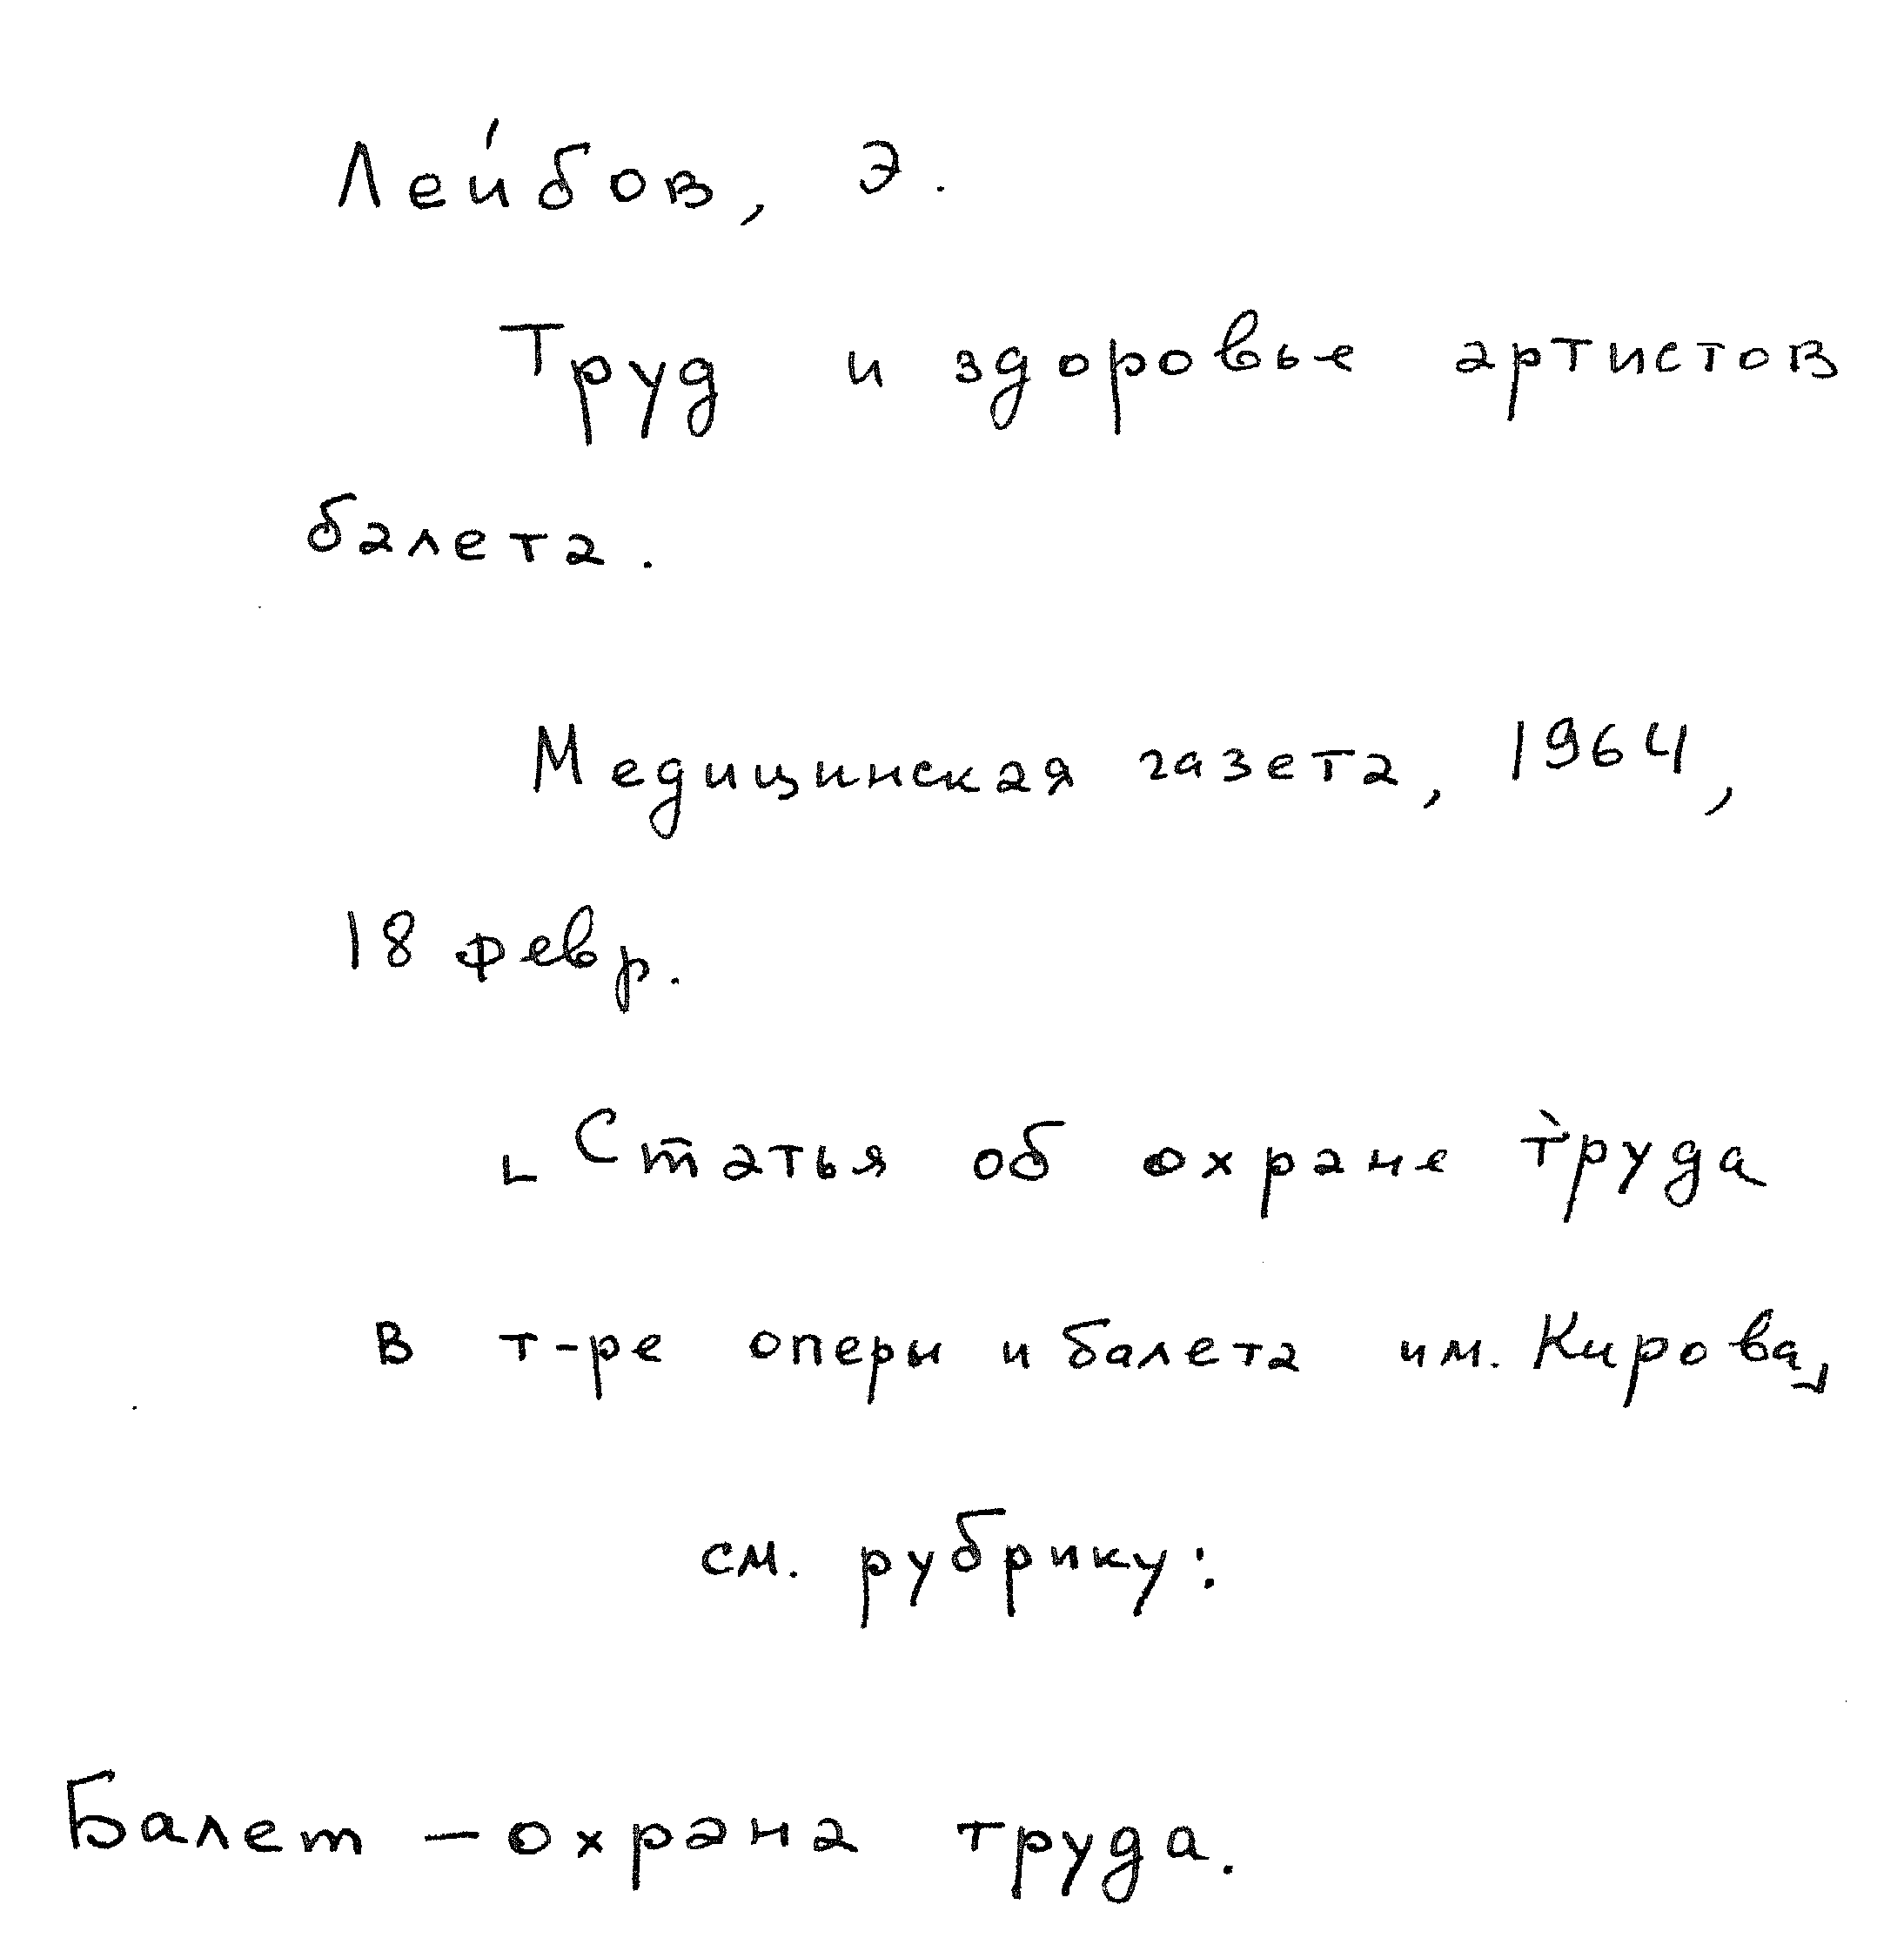 Лейбов, Э.
Труд и здоровье артистов
балета.
Медицинская газета, 1964,
18 февр.
⌞Статья об охране труда
в т-ре оперы и балета им. Кирова⌟
см. рубрику:
Балет – охрана труда.